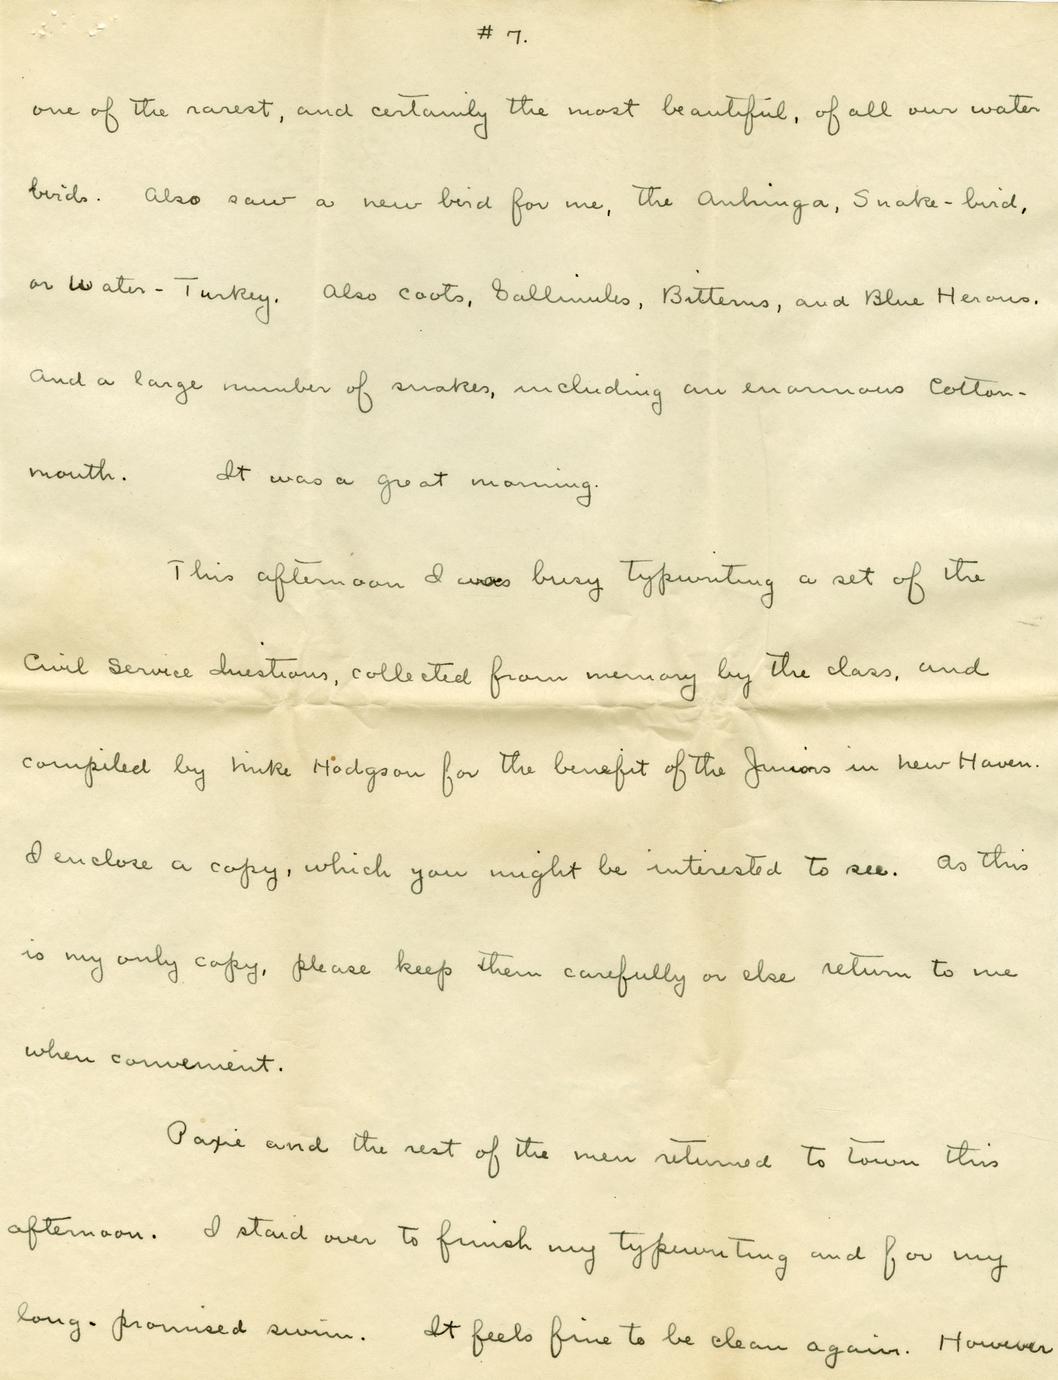 # 7.
one of the rarest, and certainly the most beautiful, of all our water
birds. Also saw a new bird for me, the Anhinga, Snake-bird,
or Water-Turkey. Also Coots, Gallinules, Bitterns, and Blue Herons.
And a large number of snakes, including an enormous Cotton-
mouth. It was a great morning.
This afternoon I was busy typwriting a set of the
Civil Service Questions, collected from memory by the class, and
compiled by Mike Hodgson for the benefit of the Juniors in New Haven.
I enclose a copy, which you might be interested to see. As this
is my only copy, please keep them carefully or else return to me
when convenient.
Paxie and the rest of the men returned to town this
afternoon. I staid over to finish my typewriting and for my
long-promised swim. It feels fine to be clean again. However